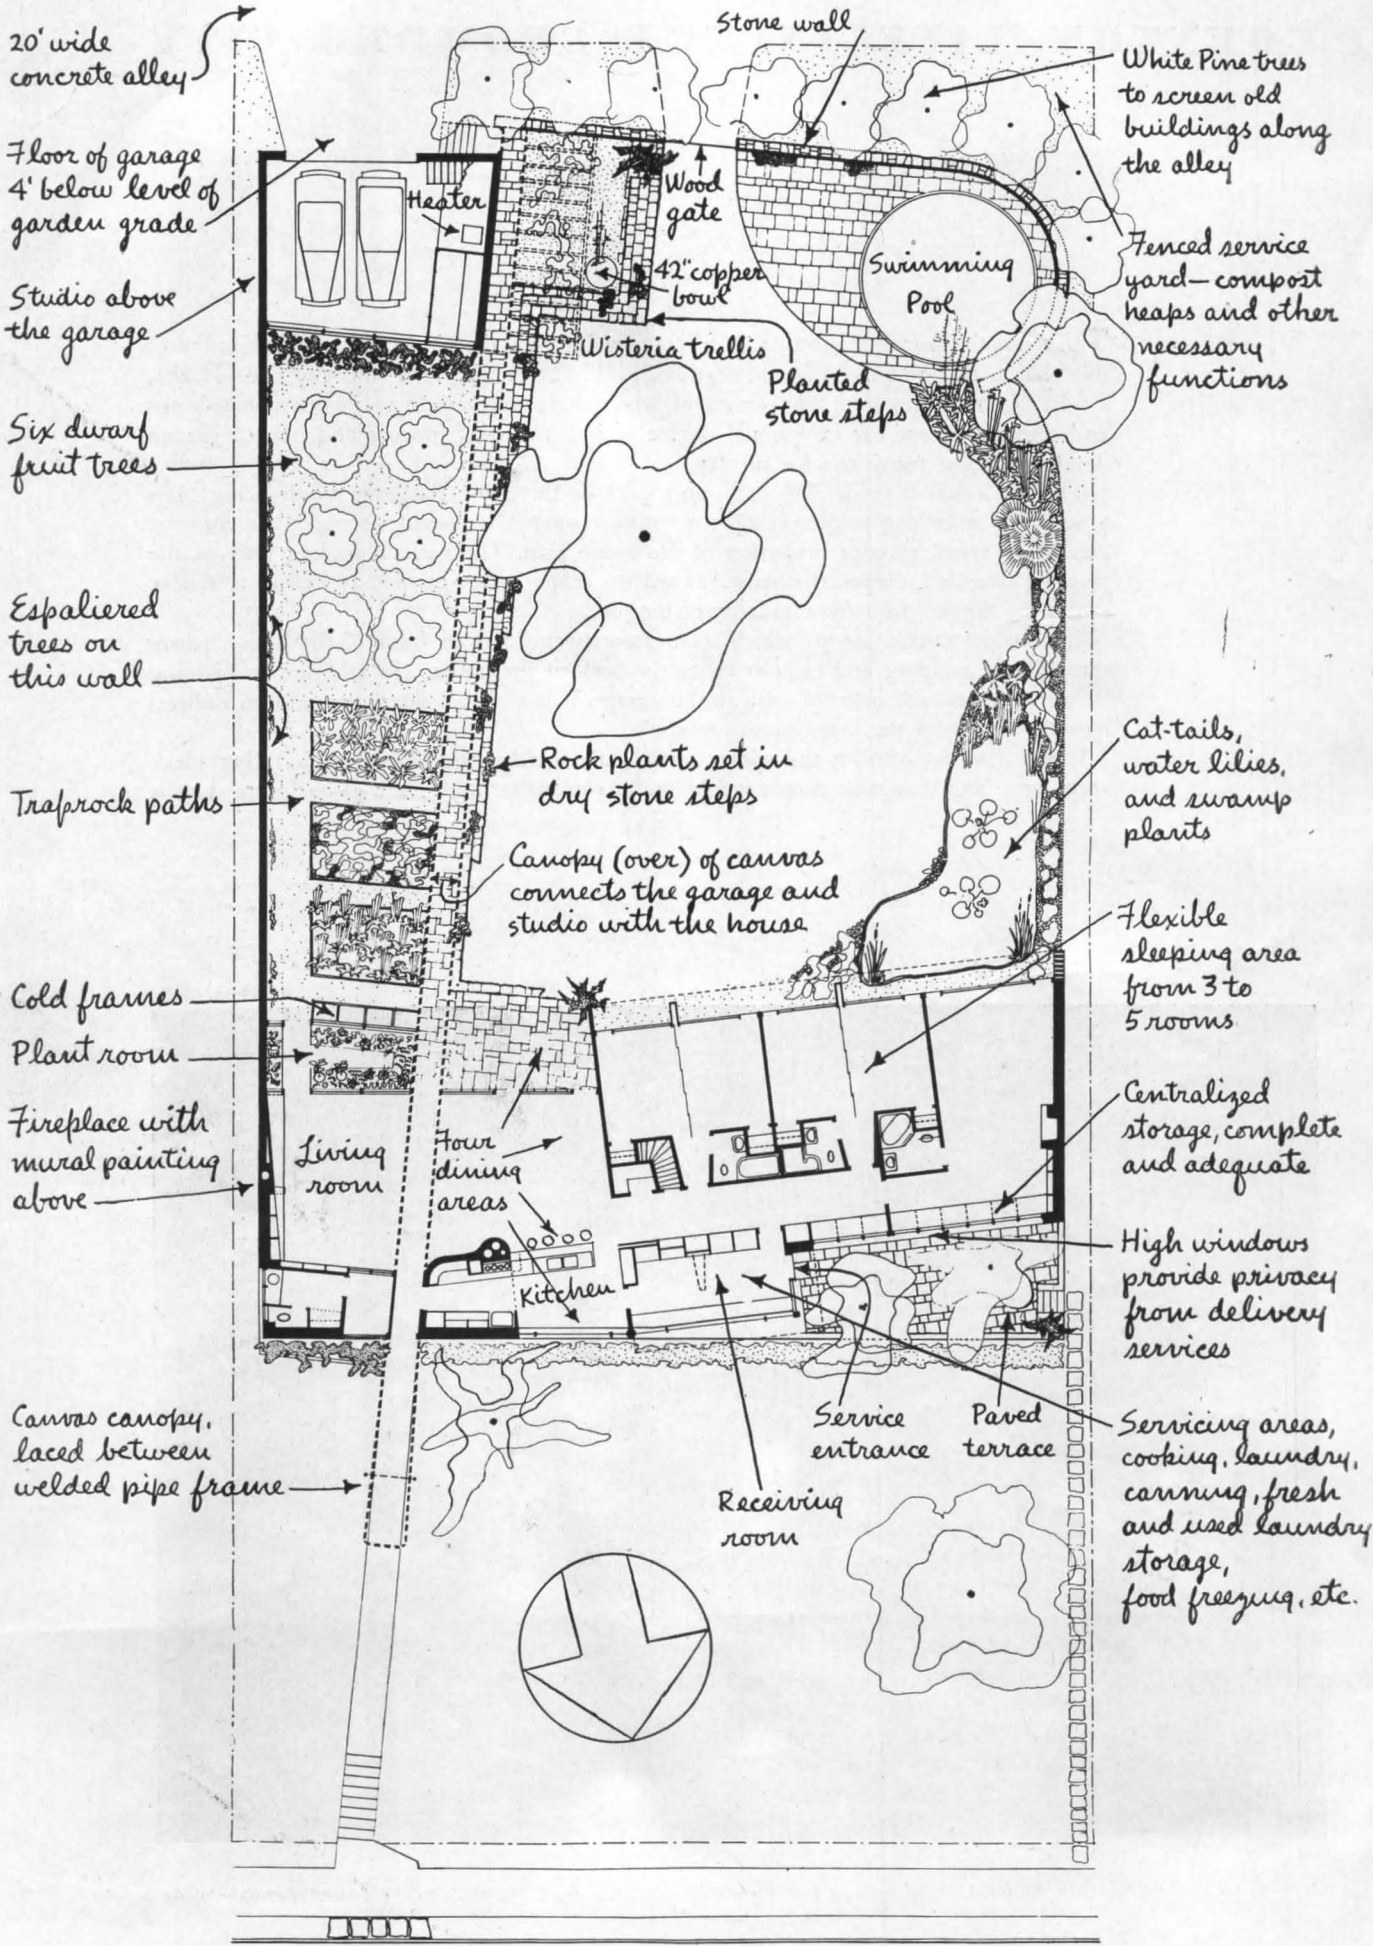 20' wide
concrete alley
Floor of garage
4' below level of
garden grade
Studio above
the garage
Six dwarf
fruit trees
Espaliered
trees on
this wall
Traprock paths
Cold frames
Plant room
Fireplace with
mural painting
above
Canvas canopy,
laced between
welded pipe frame
Stone wall
Heater
Wood
gate
42" copper
bowl
Wisteria trellis
Planted
stone steps
Swimming
Pool
Rock plants set in
dry stone steps
Canopy (over) of canvas
connects the garage and
studio with the house
Living
room
Four
dining
areas
Kitchen
Service
entrance
Paved
terrace
Receiving
room
White Pine trees
to screen old
buildings along
the alley
Fenced service
yard—compost
heaps and other
necessary
functions
Cat-tails,
water lilies,
and swamp
plants
Flexible
sleeping area
from 3 to
5 rooms
Centralized
storage, complete
and adequate
High windows
provide privacy
from delivery
services
Servicing areas,
cooking, laundry,
canning, fresh
and used laundry
storage,
food freezing, etc.